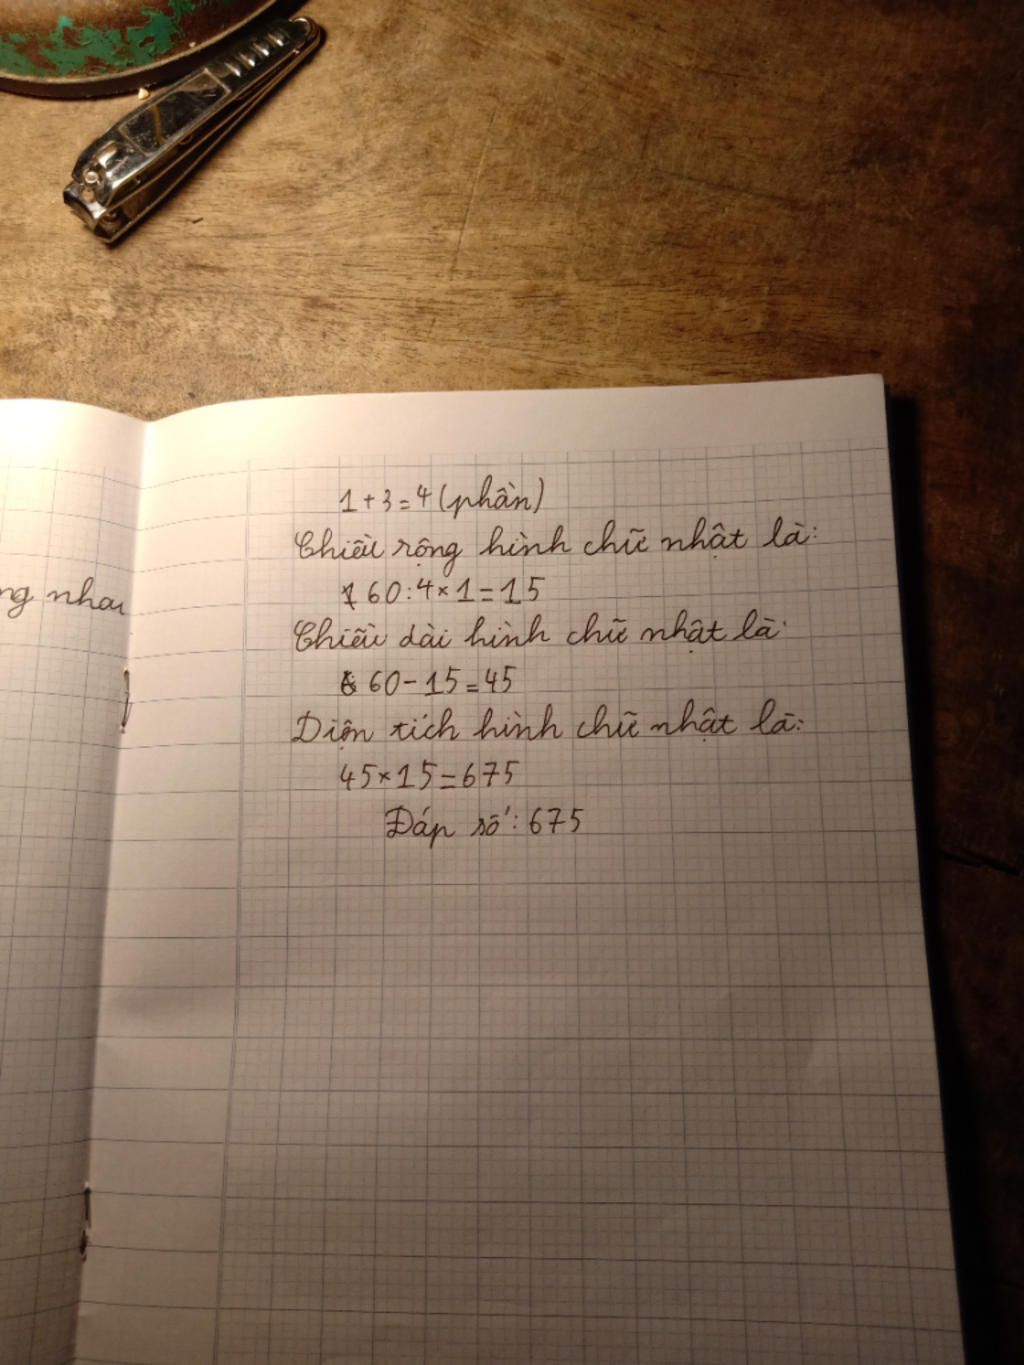 ng nhau
1 + 3 = 4 (phần)
Chiều rộng hình chữ nhật là:
60 : 4 × 1 = 15
Chiều dài hình chữ nhật là:
60 - 15 = 45
Diện tích hình chữ nhật là:
45 × 15 = 675
Đáp số: 675